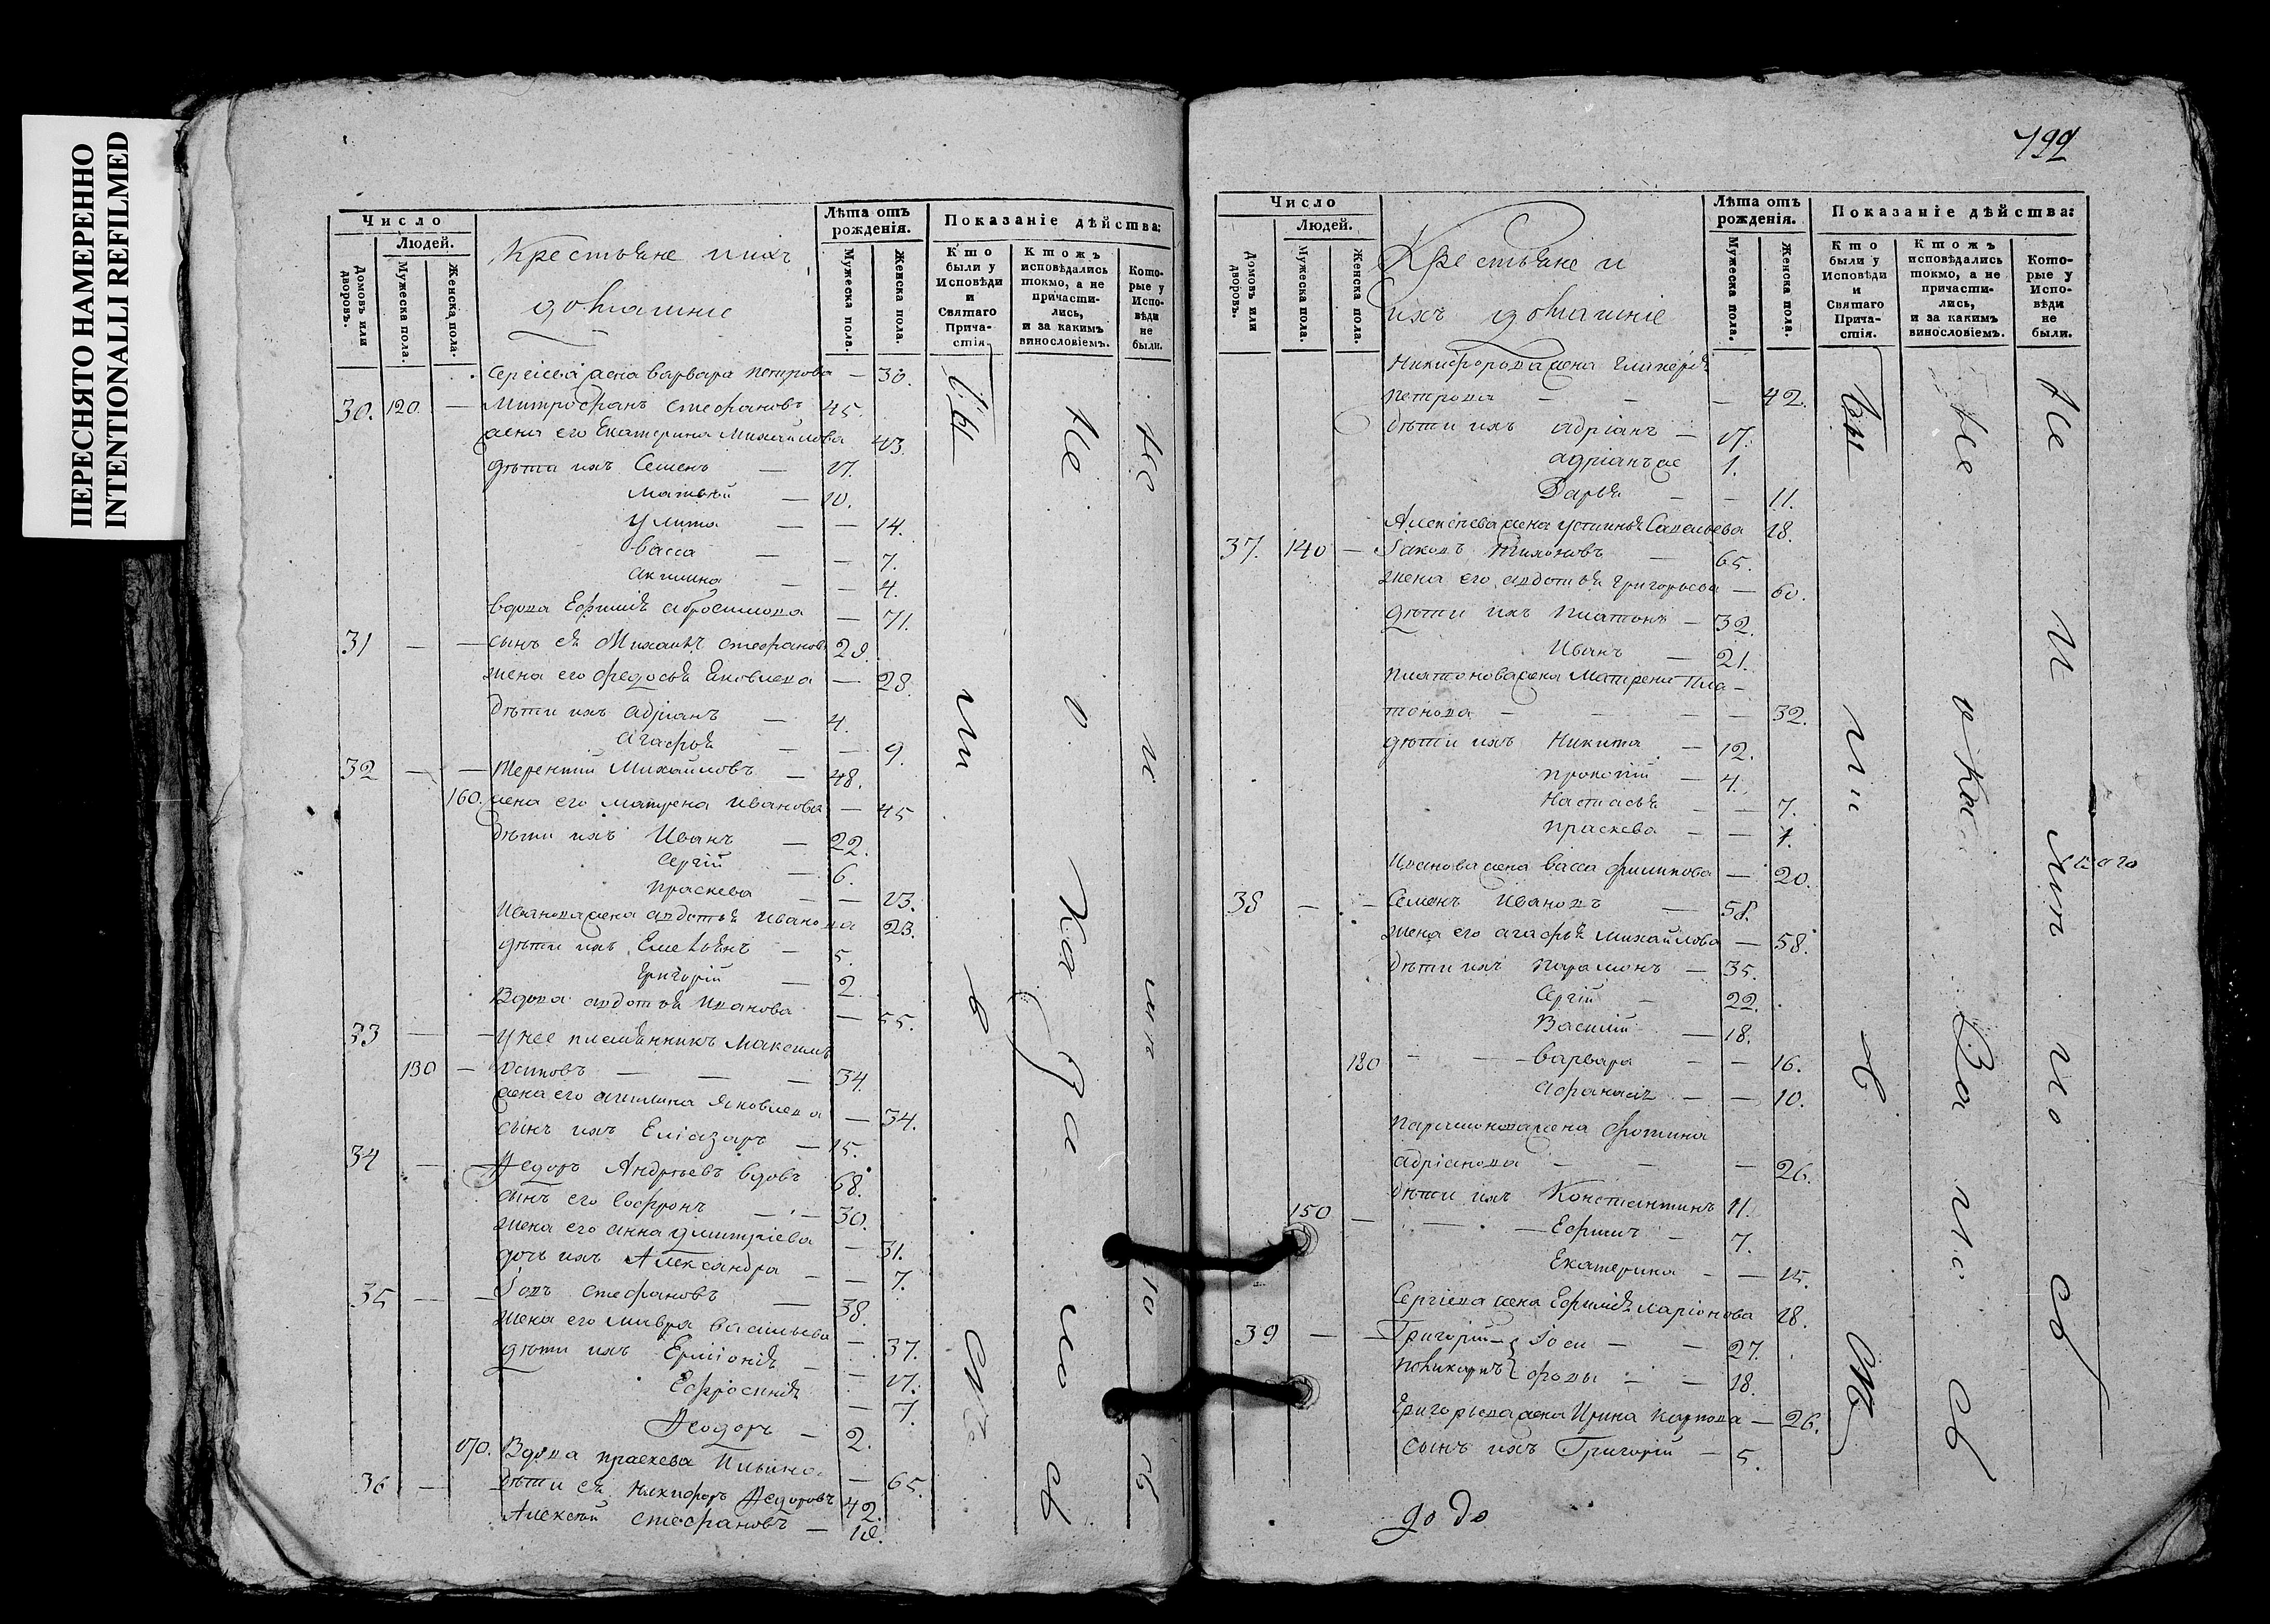 ПЕРЕСНЯТО НАМЕРЕННО
INTENTIONALLI REFILMED
Число
Людей.
Домовъ или дворовъ.
Мужеска пола.
Женска пола.
Крестьяне и ихъ
домашние
Лѣта отъ рожденія.
Мужеска пола.
Женска пола.
Показаніе дѣйства:
Кто были у Исповѣди и Святаго Причастія.
Ктожъ исповѣдались токмо, а не причастились, и за какимъ винословіемъ.
Которые у Исповѣди не были.
Сергіева жена Варвара Петрова — 30.
30. 120. — Митрофанъ Стефановъ 45.
жена его Екатерина Михайлова 43.
дѣти ихъ Семенъ — 17.
Матвѣй — 10.
Улита — — 14.
Васса — — 7.
Акилина — — 4.
вдова Ефимія Абросимова — 71.
31 — — сынъ ея Михаилъ Стефановъ 29.
жена его Федосья Яковлева — 28.
Дѣти ихъ Адріанъ — 4.
Агафья — — 9.
32 — — Терентий Михайловъ — 48.
160. жена его Матрена Иванова — 45
Дѣти ихъ Иванъ — 22.
Сергій — 6.
Праскева — — 13.
Иванова жена Авдотья Иванова 23.
дѣти ихъ Емельянъ — 5.
Григорій — 2.
Вдова Авдотья Иванова — 55.
33 — — у нее племянникъ Максимъ
130 — Осиповъ — — — 34
жена его Акилина Яковлева — 34.
сынъ ихъ Еліазаръ — 15.
34 — — Ѳедоръ Андреевъ вдовъ 68.
сынъ его Софронъ — — 30.
жена его Анна Дмитріева — 31.
дочь ихъ Александра — — 7.
35 — — Іовъ Стефановъ — 38.
жена его Мавра Васильева — 37.
дѣти ихъ Ерміонія — — 17.
Ефросинія — 7.
Ѳеодоръ — 2.
170. Вдова Праскева Ильина — 65.
36 — Дѣти ея Никифоръ Ѳедоровъ 42.
Алексѣй Стефановъ — 18.
бы ли в
Не о каза но сь
Не и мѣ ю сь
199
Число
Людей.
Домовъ или дворовъ.
Мужеска пола.
Женска пола.
Крестьяне и
ихъ домашніе
Лѣта отъ рожденія.
Мужеска пола.
Женска пола.
Показаніе дѣйства:
Кто были у Исповѣди и Святаго Причастія.
Ктожъ исповѣдались токмо, а не причастились, и за какимъ винословіемъ.
Которые у Исповѣди не были.
Никифорова жена Гликерія
Петрова — — — 42.
Дѣти ихъ Адріанъ — 17.
Адріанъ же 1.
Дарья — — 11.
Алексѣева жена Устинья Савельева 18.
37. 140 — Іаковъ Тихоновъ — 65.
жена его Авдотья Григорьева — 60.
дѣти ихъ Платонъ — 32.
Иванъ — 21.
Платонова жена Матрена Пла-
тонова — — — — 32.
дѣти ихъ Никита — 12.
Прокопій — 4.
Настасья — — 7.
Праскева — — 1.
Иванова жена Васса Филипова — 20.
38 — — Семенъ Ивановъ — 58.
жена его Агафья Михайлова — 58.
Дѣти ихъ Парамонъ — 35.
Сергій — 22.
Василій — 18.
180 — — Варвара — — 16.
— — 10.
Парамонова жена Фотина
Адріанова — — — 26.
Дѣти ихъ Константинъ 11.
150 — — — Ефимъ — 7.
Екатерина — — 15.
Сергіева жена Ефимія Ларіонова 18.
39 — — Григорій Іоси — — 27.
Поликарпъ фовы — — 18.
Григорьева жена Ирина Карпова — 26.
сынъ ихъ Григорій — 5.
бы ли
Не о ка за но сь
Не и мѣ ло сь